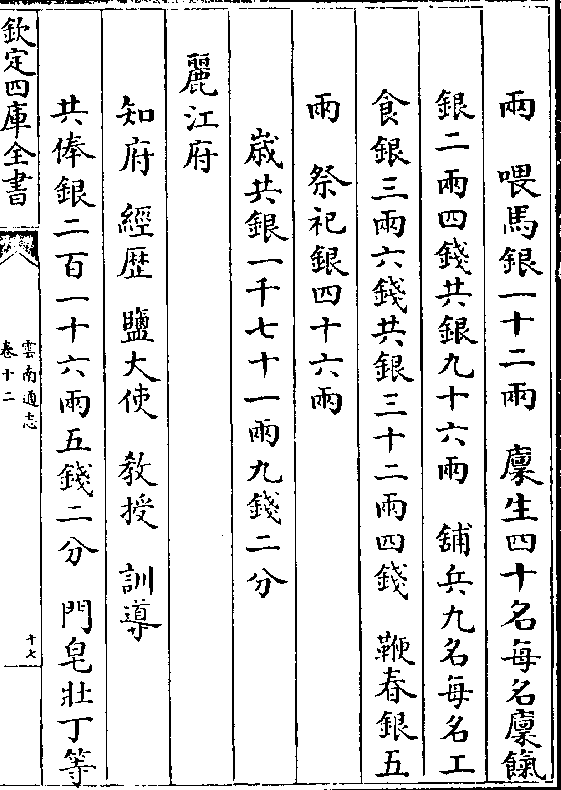 兩　喂馬銀一十二兩　廩生四十名每名廩餼
銀二兩四錢共銀九十六兩　鋪兵九名每名工
食銀三兩六錢共銀三十二兩四錢　鞭春銀五
兩　祭祀銀四十六兩
歳共銀一千七十一兩九錢二分
麗江府
知府　經歴　鹽大使　教授　訓導
共俸銀二百一十六兩五錢二分　門皂壯丁等
欽定四庫全書
雲南通志
卷十二
十七